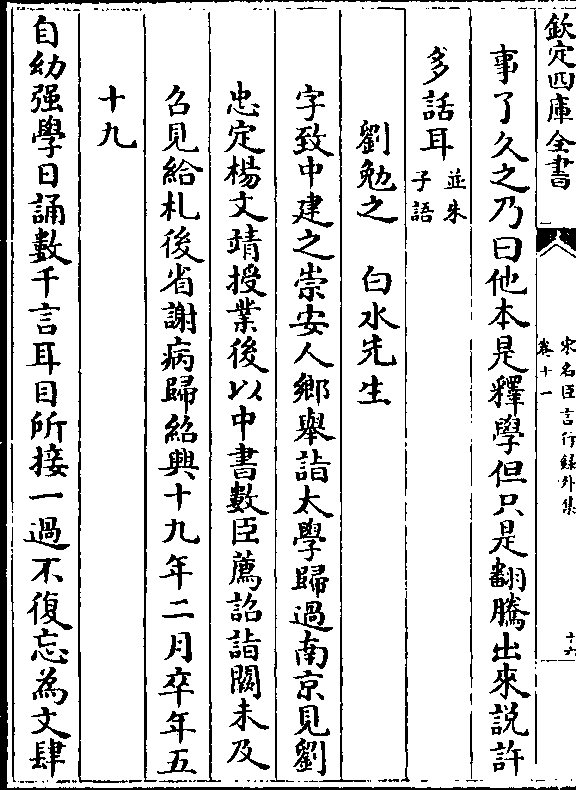 欽定四庫全書
宋名臣言行録外集
卷十一
十六
事了久之乃曰他本是釋學但只是翻騰出來説許
多話耳並朱子語
劉勉之 白水先生
字致中建之崇安人鄉舉詣太學歸過南京見劉
忠定楊文靖授業後以中書數臣薦詔詣闕未及
召見給札後省謝病歸紹興十九年二月卒年五
十九
自幼强學日誦數千言耳目所接一過不復忘為文肆